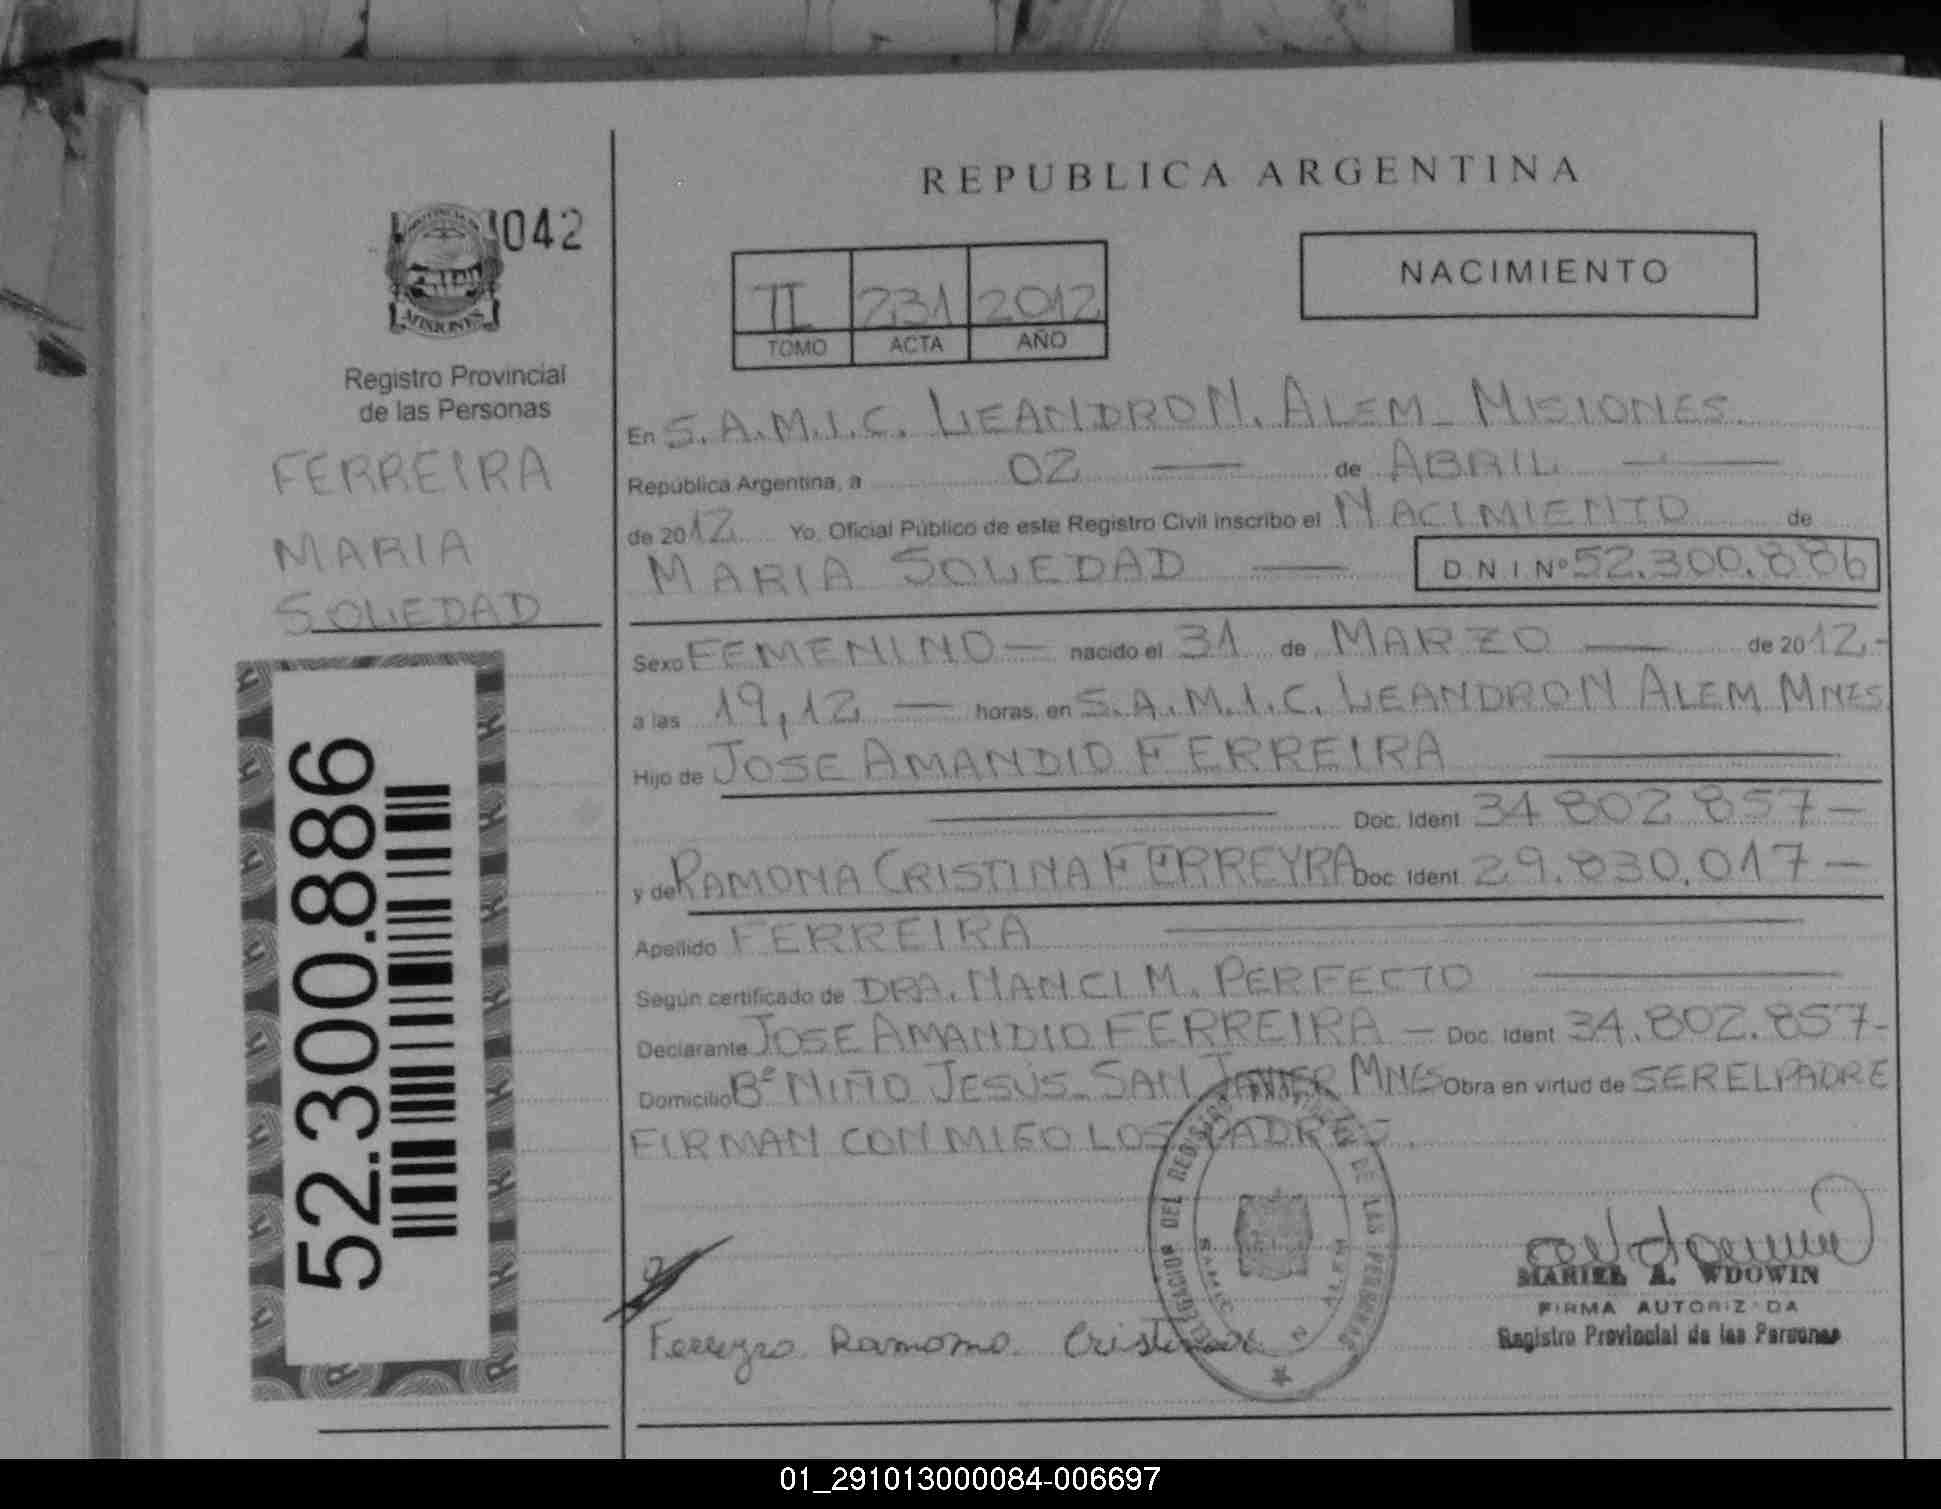 REPUBLICA ARGENTINA
042
MISIONES
Registro Provincial
de las Personas
FERREIRA
MARIA
SOLEDAD
52.300.886
II 231 2012
TOMO ACTA AÑO
NACIMIENTO
En S.A.M.I.C. LEANDRO N. ALEM - MISIONES.
República Argentina, a 02 — de ABRIL —
de 2012 Yo, Oficial Público de este Registro Civil inscribo el NACIMIENTO de
MARIA SOLEDAD — D.N.I Nº 52.300.886
Sexo FEMENINO — nacido el 31 de MARZO — de 2012.-
a las 19,12 — horas, en S.A.M.I.C. LEANDRO N ALEM MNES
Hijo de JOSE AMANDIO FERREIRA —
— Doc. Ident 34 802 857 —
y de RAMONA CRISTINA FERREYRA Doc. Ident 29.830.017 —
Apellido FERREIRA —
Según certificado de DRA. NANCI M. PERFECTO —
Declarante JOSE AMANDIO FERREIRA — Doc. Ident 34.802.857-
Domicilio Bº NIÑO JESÚS - SAN JAVIER MNES Obra en virtud de SER EL PADRE
FIRMAN CONMIGO LOS PADRES.
DELEGACION DEL REGISTRO DE LAS PERSONAS
SAMIC N ALEM
Ferreyra Ramona Cristina
MARIEL A. WDOWIN
FIRMA AUTORIZ DA
Registro Provincial de las Personas
01_291013000084-006697